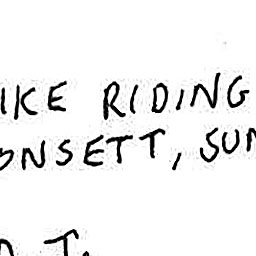 IKE RIDING
ONSETT, SUN
T.